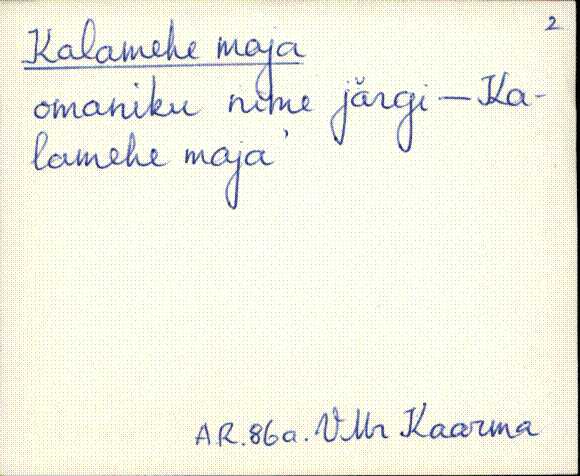 2
Kalamehe maja
omaniku nime järgi — Ka-
lamehe maja'
AR.86a. VMr Kaarma